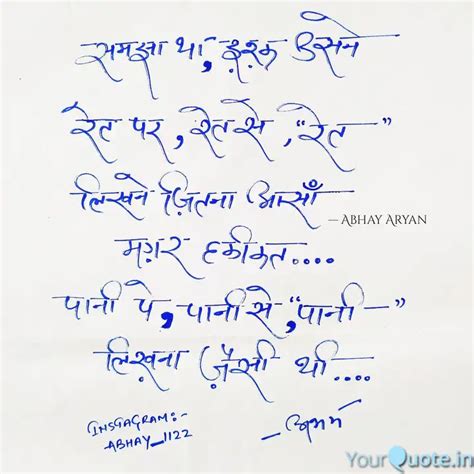 समझा था, इश़्क़ उसने
रेत पर, रेत से, “रेत-”
लिखने ज़ितना आसाँ
— ABHAY ARYAN
मग़र हकीकत....
पानी पे, पानी से, “पानी-”
लिख़ना ज़ैसी थी....
INSTAGRAM:-
ABHAY_1122
- अभय
YourQuote.in